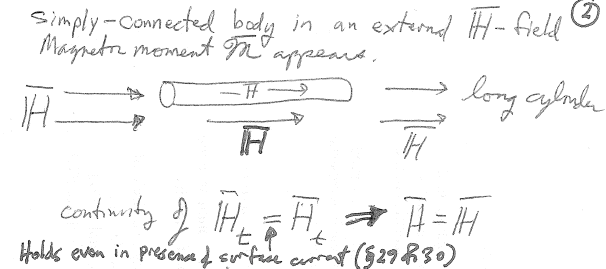 simply-connected body in an external H̅-field ②
Magnetic moment 𝔐̅ appears.
H̅ — H → long cylinder
H̅ H̅
continuity of H̅t = H̅t ⇒ H̅ = H̅
Holds even in presence of surface current (§29 & 30)